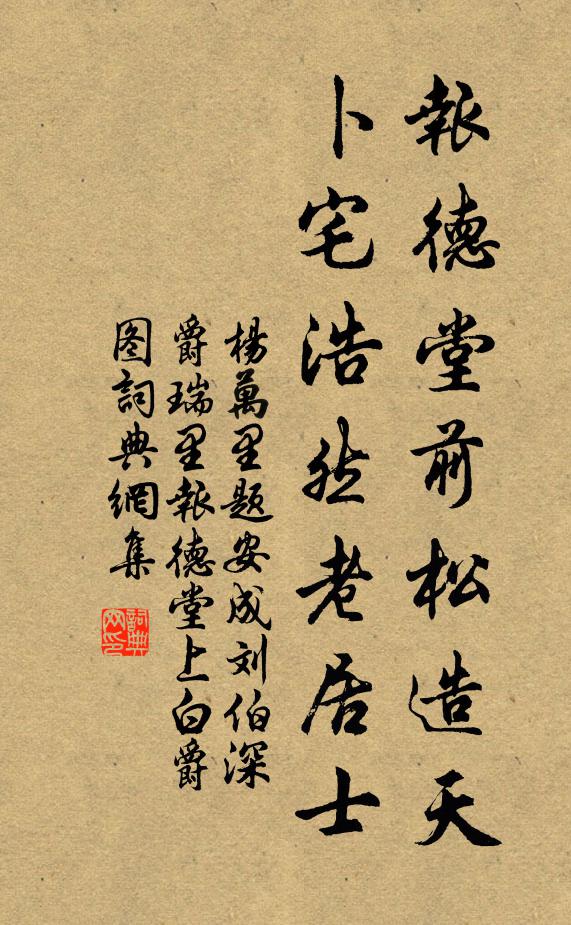 報德堂前松造天
卜宅浩然老居士
楊萬里題安成刘伯深
爵瑞里報德堂上白爵
图詞典網集
詞典
网印